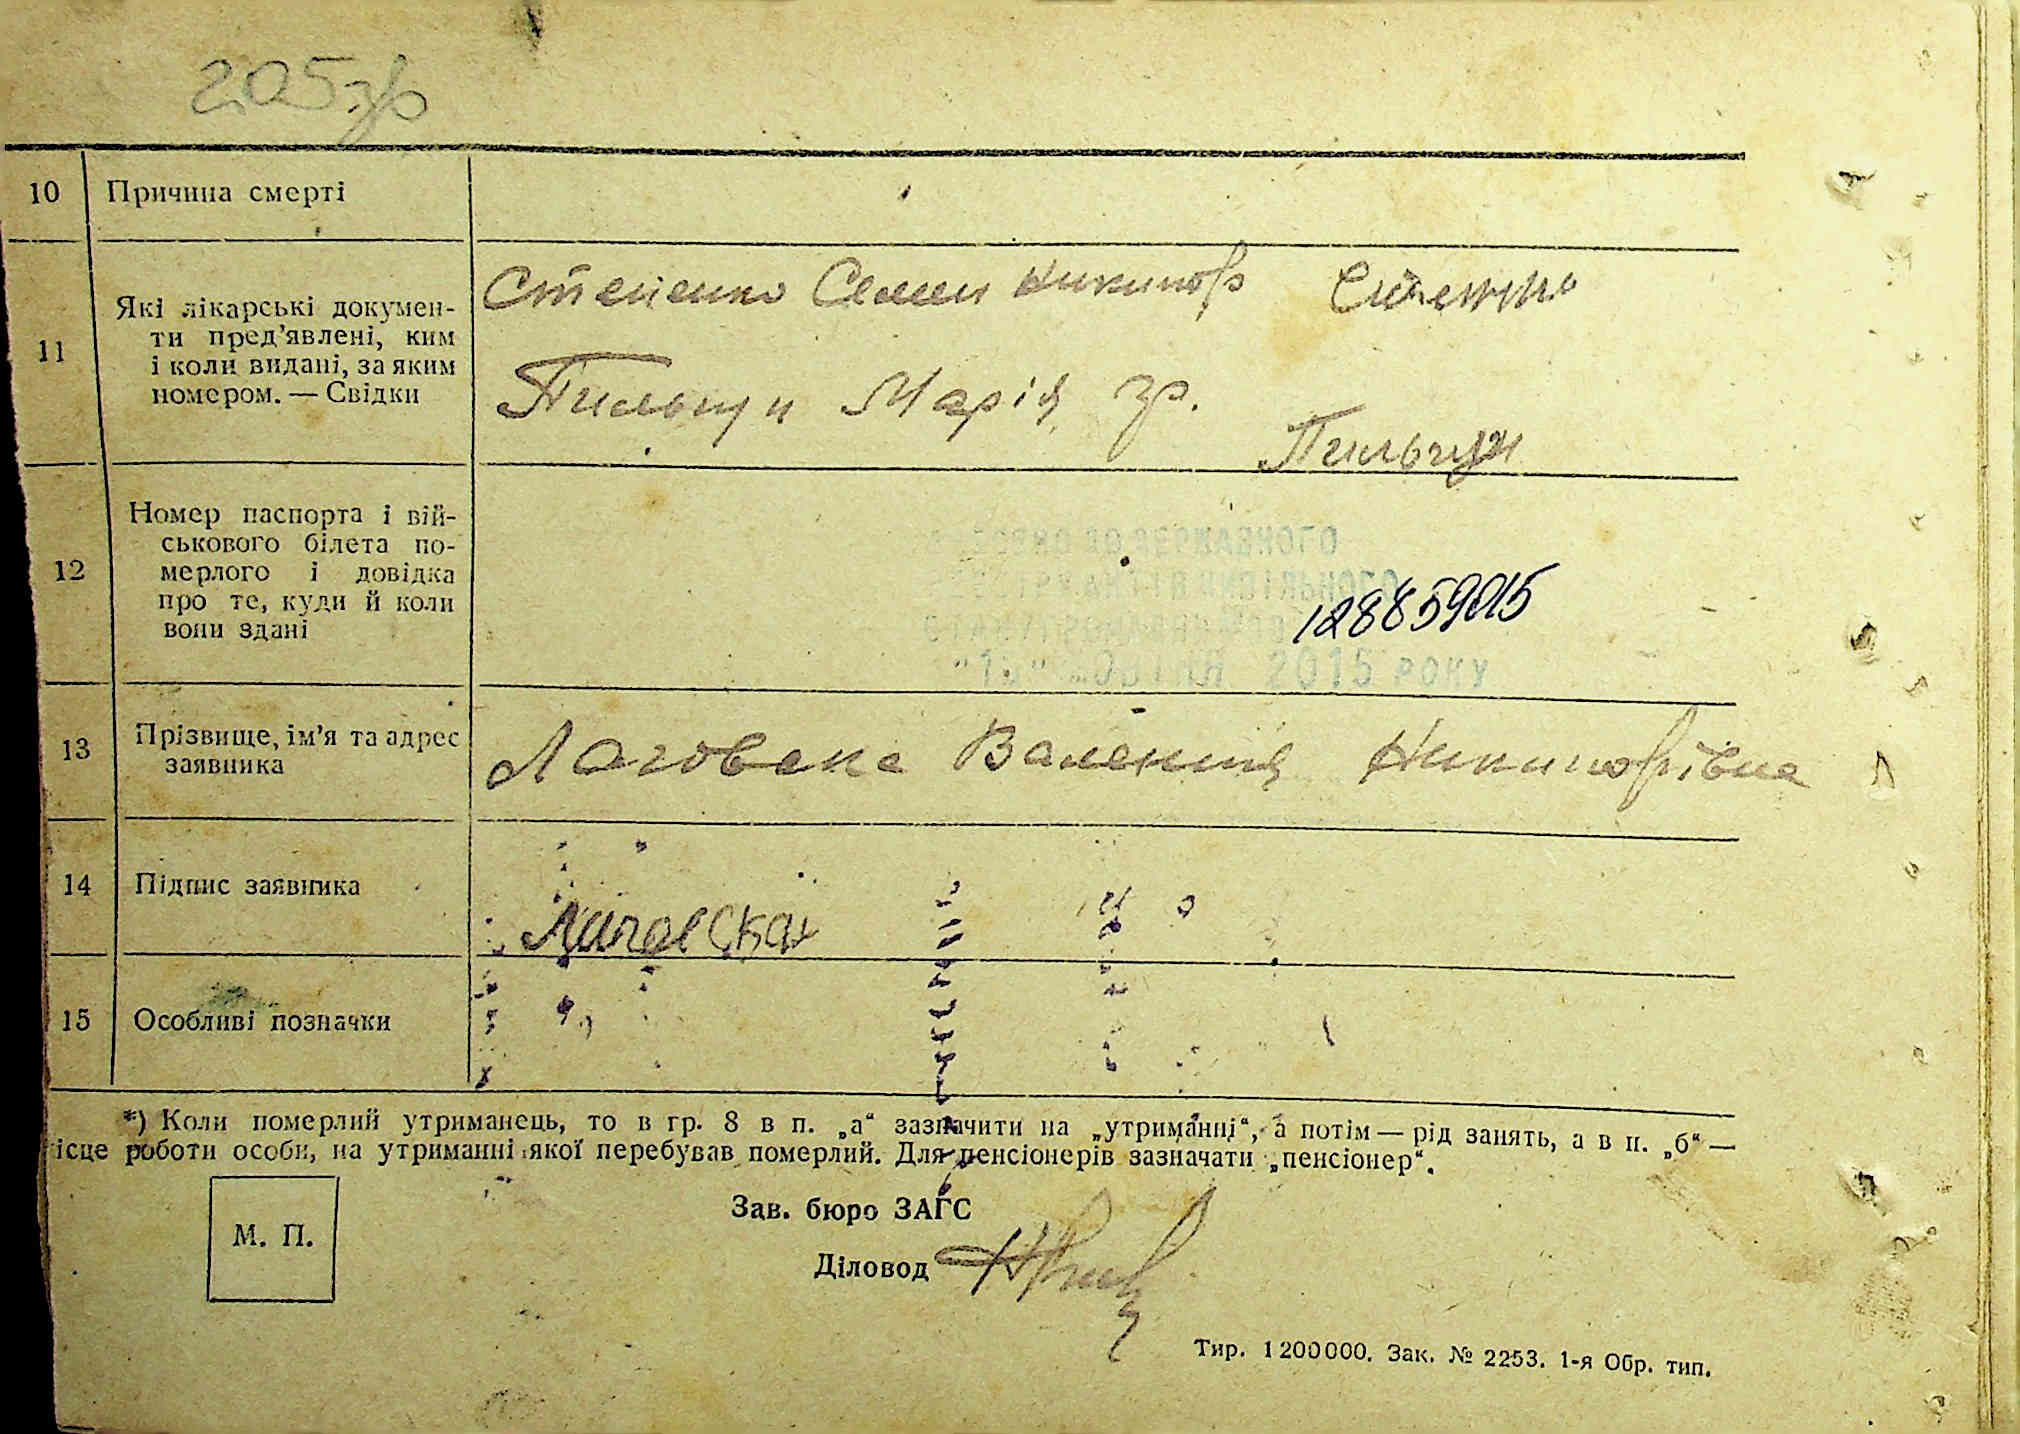 205 зр
10 Причина смерті
11 Які лікарські докумен-
ти пред'явлені, ким
і коли видані, за яким
номером. — Свідки
Степенко Семен Никифор
Марія зр.
12 Номер паспорта і вій-
ськового білета по-
мерлого і довідка
про те, куди й коли
вони здані
ДО ДЕРЖАВНОГО
128859015
2015 РОКУ
13 Прізвище, ім'я та адрес
заявника
Логовска Валентина Никифорівна
14 Підпис заявника
15 Особливі позначки
*) Коли померлий утриманець, то в гр. 8 в п. „а“ зазначити на „утриманні“, а потім — рід занять, а в п. „б“ —
ісце роботи особи, на утриманні якої перебував померлий. Для пенсіонерів зазначати „пенсіонер“.
М. П.
Зав. бюро ЗАГС
Діловод
Тир. 1200000. Зак. № 2253. 1-я Обр. тип.